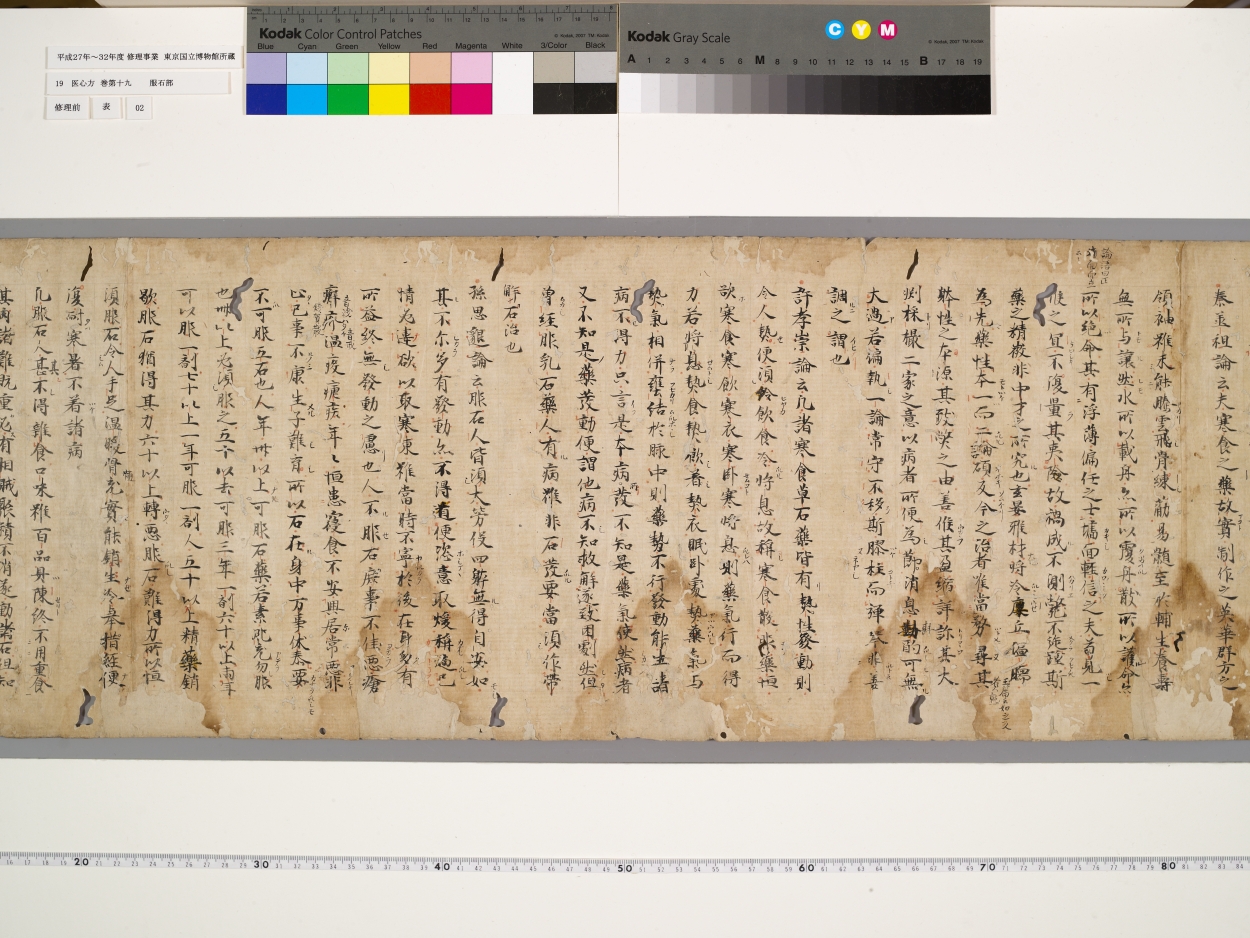 平成27年～32年度 修理事業 東京国立博物館所蔵
19 医心方 巻第十九 服石部
修理前 表 02
Kodak Color Control Patches
© Kodak, 2007 TM: Kodak
Blue Cyan Green Yellow Red Magenta White 3/Color Black
Kodak Gray Scale
C Y M
© Kodak, 2007 TM: Kodak
A 1 2 3 4 5 6 M 8 9 10 11 12 13 14 15 B 17 18 19
秦承祖論云夫寒食之藥故實制作之英華群方之
領袖雖未能騰雲飛骨練筋易髓至於輔生養壽
無所与讓然水所以載舟亦所以覆舟散所以護命亦
所以絶命其有浮薄偏任之士墻面輕信之夫苟見一
候之宜不復量其夷險故禍成不測斃不旋踵斯
藥之精微非中才之所究也玄晏雅材將冷廩丘温歸
為先藥性本一而二論碩反今之治者唯當務尋其
躰性之本源其致弊之由善候其盈縮詳診其大
採撮二家之意以病者所便為節消息斟酌可無
大過若偏執一論常守不移斯膠柱而弾琴非善
調之謂也
許孝崇論云凡諸寒食草石藥皆有熱性發動則
令人熱便須冷飲食冷將息故稱寒食散藥恒
欲寒食寒飲寒衣寒卧寒將息則藥氣行而得
力若將息熱食熱飲著熱衣眠卧處熱藥氣与
熱氣相併壅結於脉中則藥勢不行發動能生諸
病不得力只言是本病發不知是藥氣使然病者
又不知是藥發動便謂他病不知救解遂致困劇然但
曾經服乳石藥人有病雖非石發要當須作帶
解石治也
孫思邈論云服石人皆須大勞役四躰無得自安如
其不尓多有發動亦不得直便恣意取暖稱適己
情必違欲以取寒凍雖當時不寧於後在身多有
所益終無發動之慮也人不服石庶事不佳悪瘡
癬疥温疫瘧疾年々恒患寢食不安興居常悪非
止己事不康生子難育所以石在身中万事休泰要
不可服五石也人年卅以上可服石藥若素肥充勿服
也卌以上必須服之五十以去可服三年一剤六十以上両年
可以服一剤七十以上一年可服一剤人五十以上精藥銷
歇服石猶得其力六十以上轉悪服石難得力所以恒
須服石令人手足温暖骨充實能銷生冷舉措輕便
復耐寒暑不著諸病
凡服石人甚不得雜食口味雖百品具陳終不用重食
其病諸雜既重必有相賊聚積不消遂動諸石但知
20 30 40 50 60 70 80